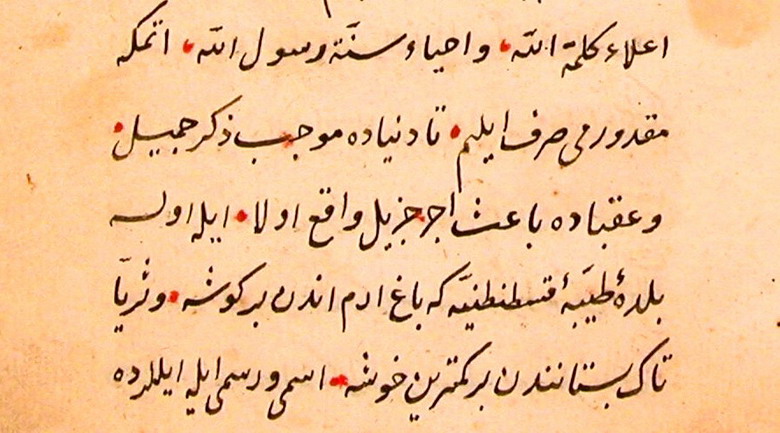 اعلاء كلمة الله ، واحياء سنّة رسول الله ، اتمكه
مقدورمی صرف ایلیم ، تا دنیاده موجب ذکر جمیل ،
وعقباده باعث اجر جزیل واقع اولا ، ایله اولسه
بلدهٔ طیّبهٔ قسطنطنیّه که باغ ارم اندن بر کوشه ، وثریّا
تاك بستانندن بر کمترین خوشه ، اسمی ورسمی ایله ایللرده